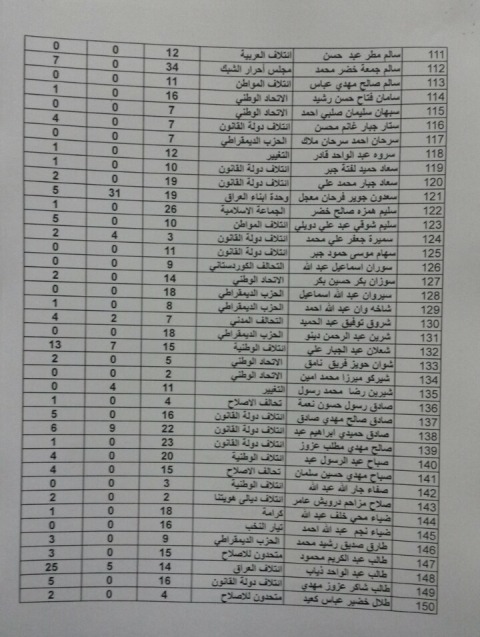 111 سالم مطر عبد حسن ائتلاف العربية 12 0 0
112 سالم جمعة خضر محمد مجلس أحرار الشبك 34 0 7
113 سالم صالح مهدي عباس ائتلاف المواطن 11 0 0
114 سامان فتاح حسن رشيد الاتحاد الوطني 16 0 1
115 سبهان سليمان صلبي احمد الاتحاد الوطني 7 0 0
116 ستار جبار غانم محسن ائتلاف دولة القانون 7 0 4
117 سرحان احمد سرحان ملاك الحزب الديمقراطي 7 0 0
118 سروه عبد الواحد قادر التغيير 12 0 1
119 سعاد حميد لفتة جبر ائتلاف دولة القانون 10 0 1
120 سعاد جبار محمد علي ائتلاف دولة القانون 19 0 2
121 سعدون جوير فرحان معجل وحدة ابناء العراق 19 31 5
122 سليم همزه صالح خضر الجماعة الاسلامية 26 0 1
123 سليم شوقي عبد علي دويلي ائتلاف المواطن 10 0 5
124 سميرة جعفر علي محمد ائتلاف دولة القانون 3 4 2
125 سهام موسى حمود جبر ائتلاف دولة القانون 11 0 0
126 سوران اسماعيل عبد الله التحالف الكوردستاني 9 0 0
127 سوزان بكر حسين بكر الاتحاد الوطني 14 0 2
128 سيروان عبد الله اسماعيل الحزب الديمقراطي 18 0 0
129 شاخه وان عبد الله احمد الحزب الديمقراطي 8 0 1
130 شروق توفيق عبد الحميد التحالف المدني 7 2 4
131 شرين عبد الرحمن دينو الحزب الديمقراطي 18 0 0
132 شعلان عبد الجبار علي ائتلاف الوطنية 15 7 13
133 شوان حويز فريق نامق الاتحاد الوطني 5 0 2
134 شيركو ميرزا محمد امين الاتحاد الوطني 2 0 0
135 شيرين رضا محمد رسول التغيير 11 4 0
136 صادق رسول حسون نعمة تحالف الاصلاح 4 0 1
137 صادق صالح مهدي صادق ائتلاف دولة القانون 16 0 5
138 صادق حميدي ابراهيم عبد ائتلاف دولة القانون 22 9 6
139 صالح مهدي مطلب عزوز ائتلاف دولة القانون 23 0 1
140 صباح عبد الرسول عبد ائتلاف الوطنية 20 0 4
141 صباح مهدي حسين سلمان تحالف الاصلاح 15 0 4
142 صفاء جار الله عبد الله ائتلاف الوطنية 3 0 4
143 صلاح مزاحم درويش عامر ائتلاف ديالى هويتنا 2 0 2
144 ضياء محي خلف عبد الله كرامة 18 0 1
145 ضياء نجم عبد الله احمد تيار النخب 16 0 0
146 طارق صديق رشيد محمد الحزب الديمقراطي 9 0 3
147 طالب عبد الكريم محمود متحدون للاصلاح 15 0 3
148 طالب عبد الواحد ذياب ائتلاف العراق 14 5 25
149 طالب شاكر عزوز مهدي ائتلاف دولة القانون 16 0 5
150 طلال خضير عباس كعيد متحدون للاصلاح 4 0 2